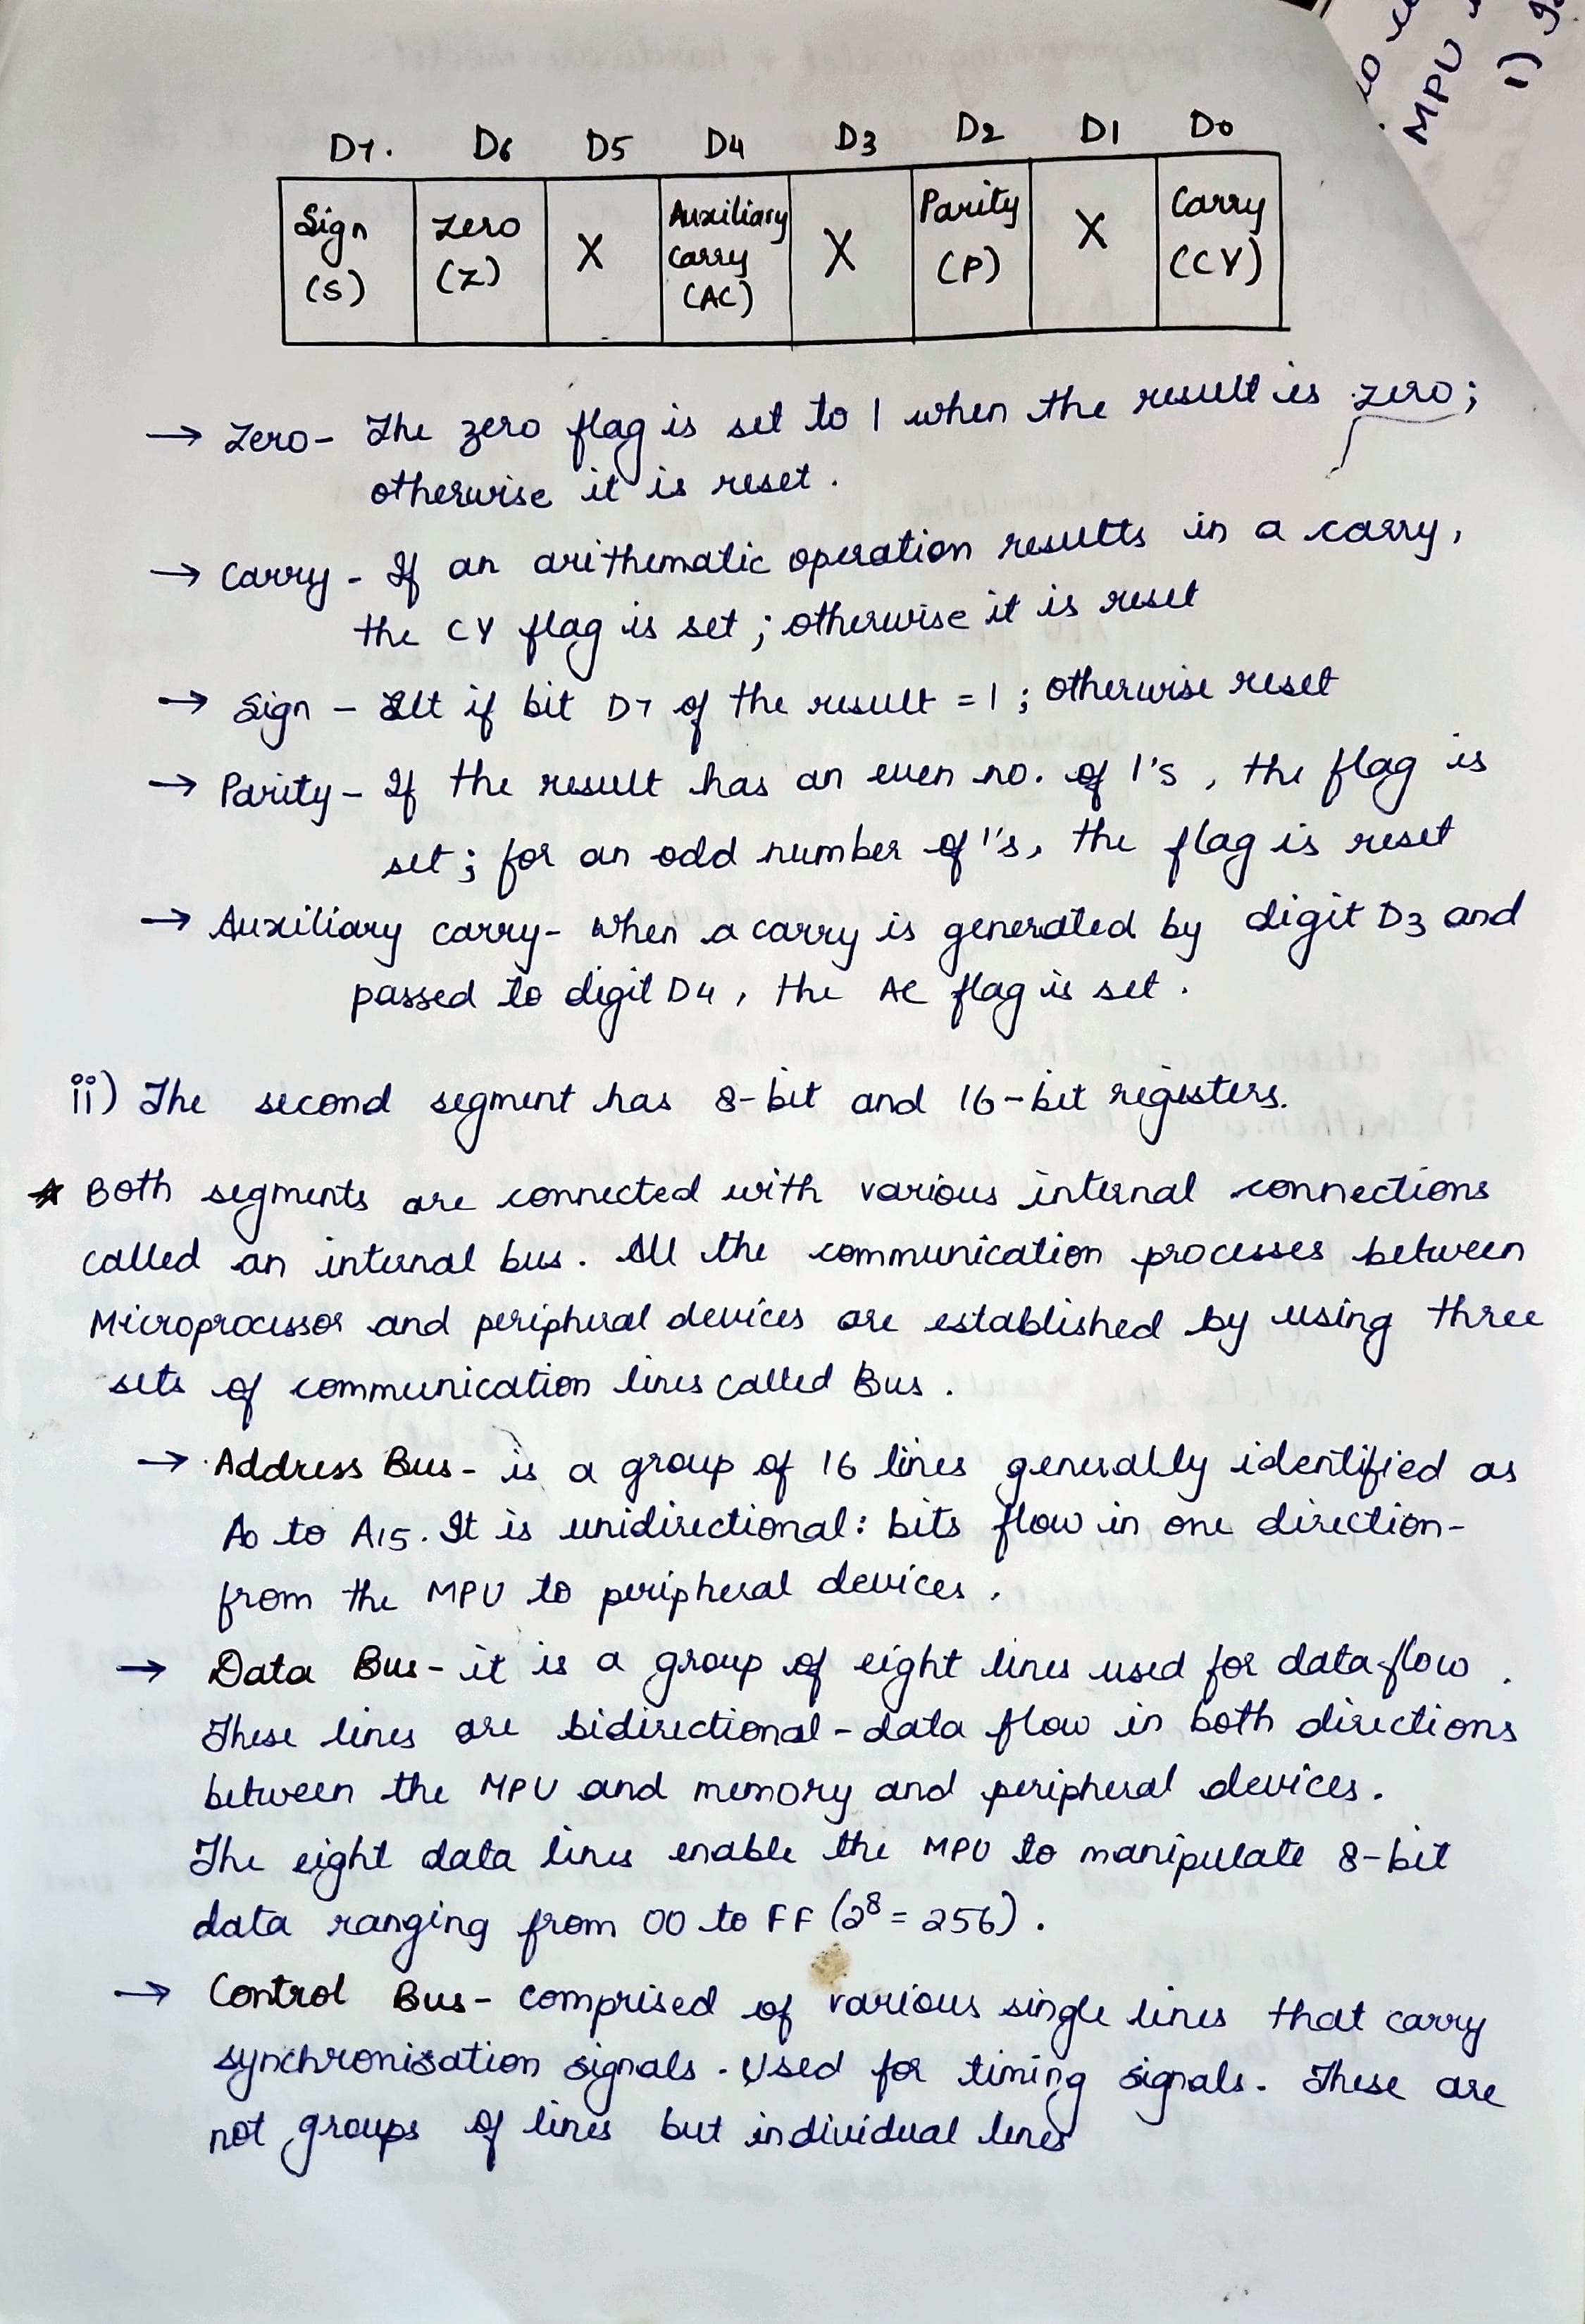 MPU
1)
D7. D6 D5 D4 D3 D2 D1 D0
Sign Zero X Auxiliary X Parity X Carry
(S) (Z) Carry (P) (CY)
(AC)
→ Zero- The zero flag is set to 1 when the result is zero;
otherwise it is reset.
→ Carry - If an arithematic operation results in a carry,
the CY flag is set; otherwise it is reset
→ Sign - Set if bit D7 of the result = 1; otherwise reset
→ Parity - If the result has an even no. of 1's, the flag is
set; for an odd number of 1's, the flag is reset
→ Auxiliary carry- When a carry is generated by digit D3 and
passed to digit D4, the AC flag is set.
ii) The second segment has 8-bit and 16-bit registers.
☆ Both segments are connected with various internal connections
called an internal bus. All the communication processes between
Microprocessor and peripheral devices are established by using three
sets of communication lines called Bus.
→ Address Bus - is a group of 16 lines generally identified as
A0 to A15. It is unidirectional: bits flow in one direction-
from the MPU to peripheral devices.
→ Data Bus - it is a group of eight lines used for data flow.
These lines are bidirectional - data flow in both directions
between the MPU and memory and peripheral devices.
The eight data lines enable the MPU to manipulate 8-bit
data ranging from 00 to FF (2⁸ = 256).
→ Control Bus- comprised of various single lines that carry
synchronisation signals. Used for timing signals. These are
not groups of lines but individual lines